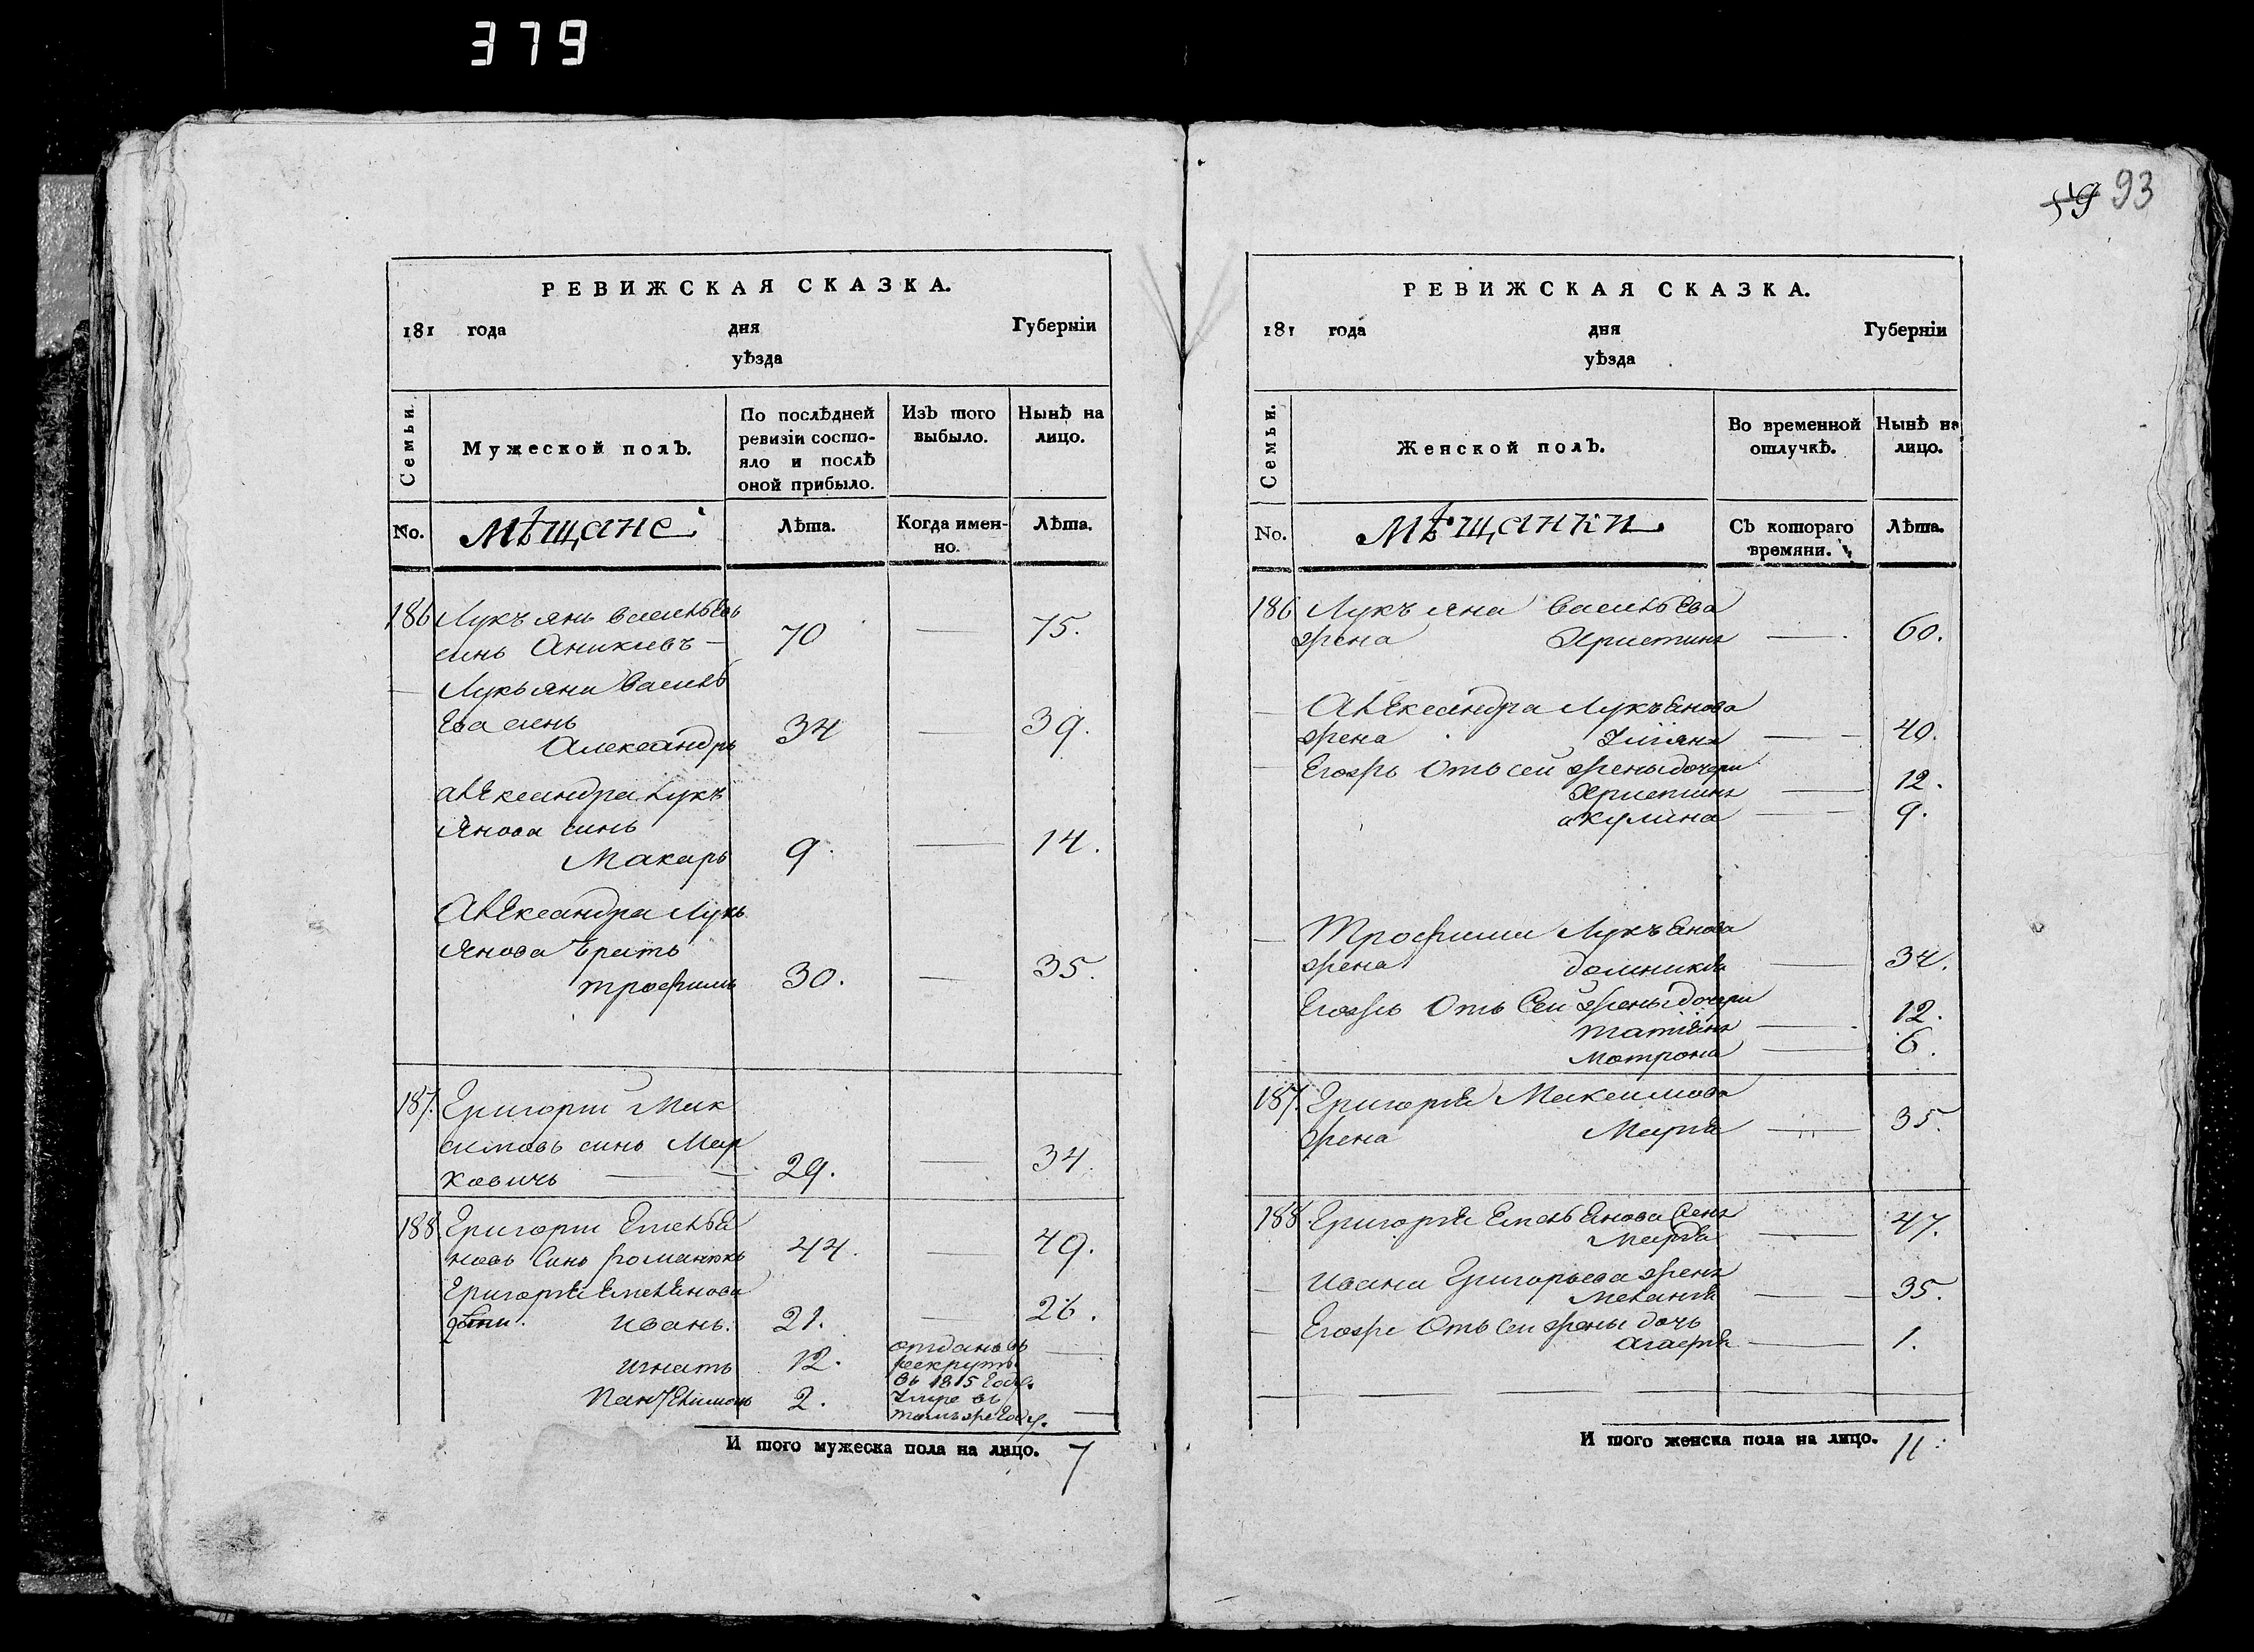 379
РЕВИЖСКАЯ СКАЗКА.
181 года дня Губерніи
уѣзда
Семьи.
Мужеской полъ.
По послѣдней ревизіи состо-
яло и послѣ оной прибыло.
Изъ того выбыло.
Нынѣ на лицо.
No.
мѣщане
Лѣта.
Когда имен-
но.
Лѣта.
186 Лукъянъ васильЕвъ
синъ Аникиевъ — 70 — 75.
— Лукьяна Василь
Ева сынъ
Александръ 34 — 39.
алЕксандра Лукъ
Янова синъ
Макаръ 9. — 14.
АлЕксандра Лукь
Янова братъ
трофимъ 30. — 35.
187. Григорій Мак
симовъ синъ Мар
ковичъ — 29. — 34.
188. Григорій Емельѣ
новъ Синъ романюкъ 44. — 49.
Григорія ЕмелЕнова
дѣти. иванъ. 21. — 26.
игнатъ 12. отданъ въ —
рекруты
въ 1815 Году.
ПанЕлимонъ 2. Умре въ —
томъ же Году.
И того мужеска пола на лицо. 7
59 93
РЕВИЖСКАЯ СКАЗКА.
181 года дня Губерніи
уѣзда
Семьи.
Женской полъ.
Во временной отлучкѣ.
Нынѣ на лицо.
No.
мѣщанки.
Съ котораго
времяни.
Лѣта.
186 Лукъяна васильЕва
жена Христина — 60.
— АлЕксандра Лукъянова
жена Уляна — 40.
— Егожъ Отъ сеи жены дочери
Христина — 12.
акулина — 9.
— Трофима Лукъянова
жена домникія — 34.
Егожъ Отъ Сеи жены дочери
татіяна — 12.
мотрона — 6.
187. Григорія Максимова
жена Марія — 35.
188. Григорія Емельянова жена
Марія — 47.
— ивана Григорьева жена
Меланія — 35.
— Егоже Отъ сеи жены дочь
агафія — 1.
И того женска пола на лицо. 11.